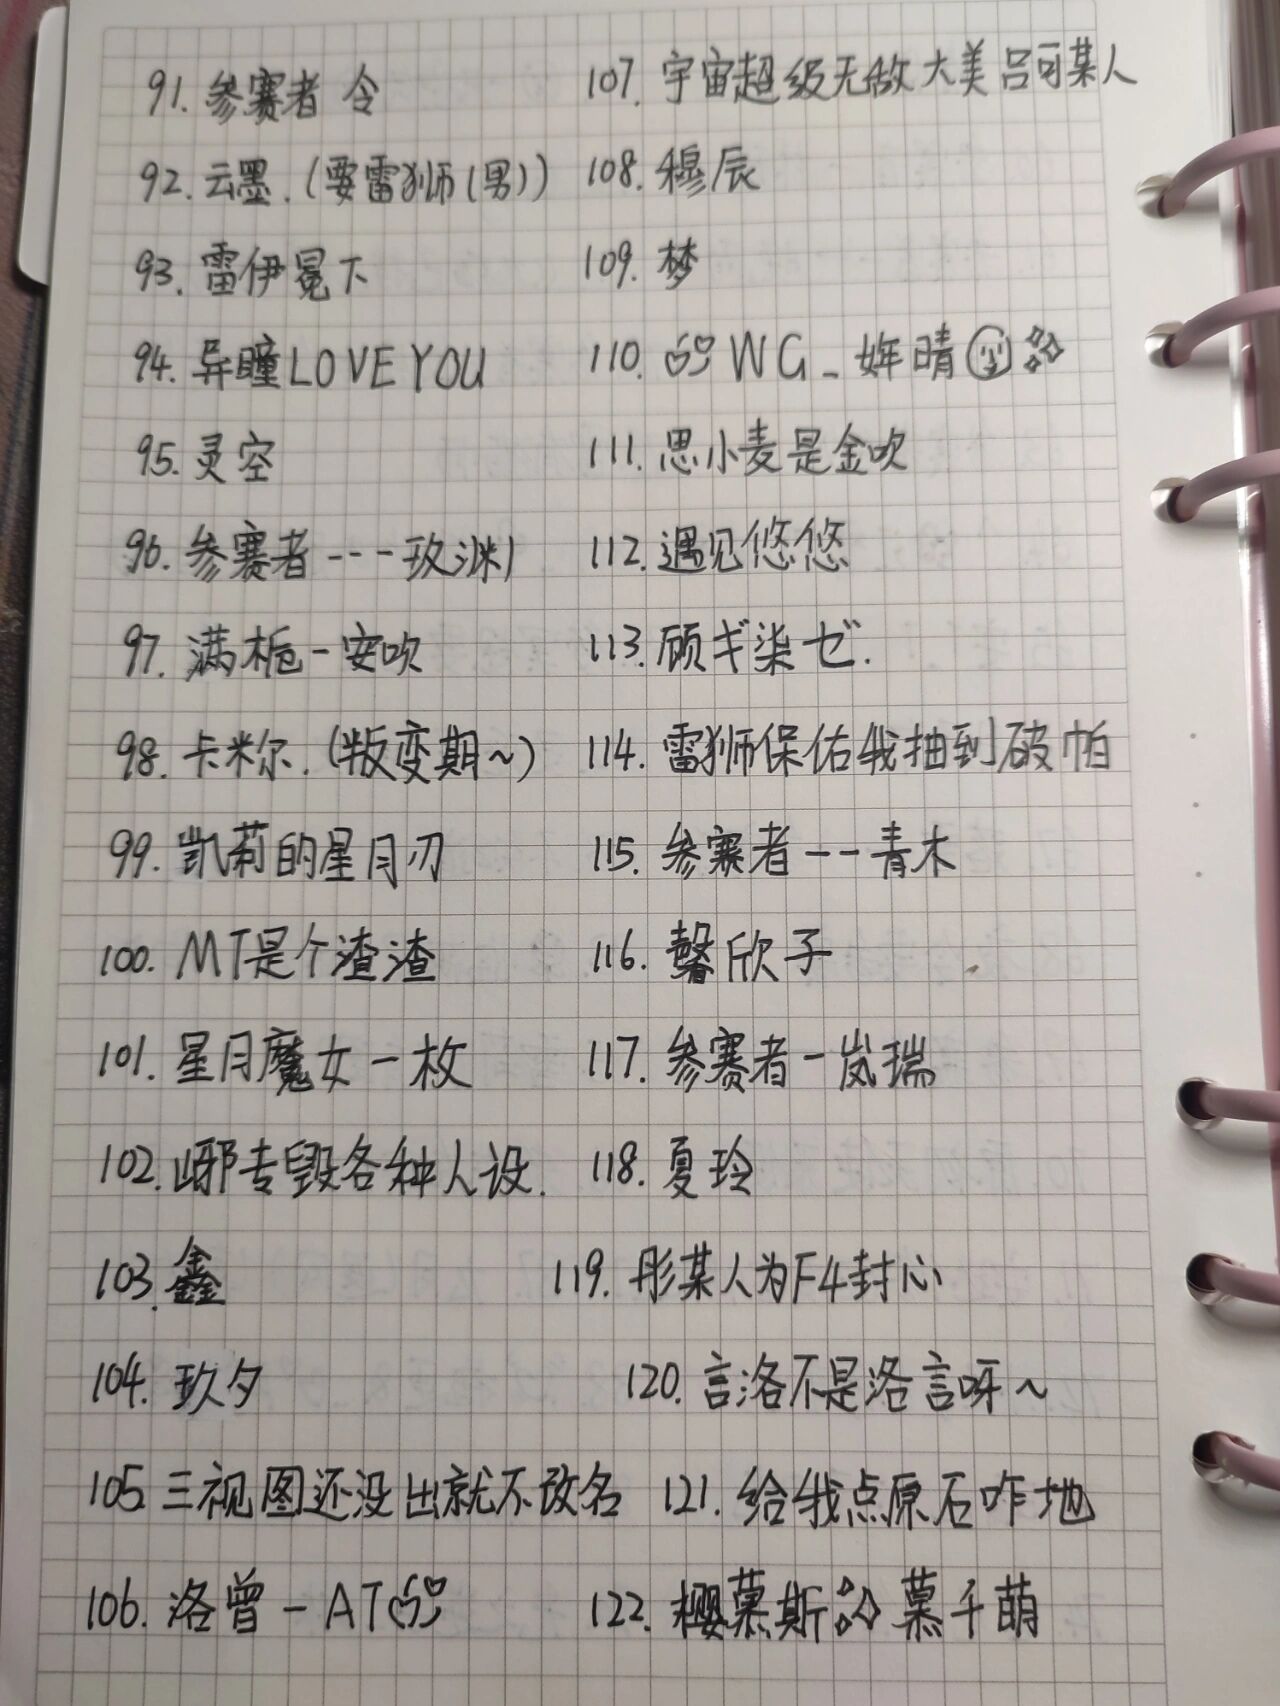 91. 参赛者 令
92. 云墨.(要雷狮(男))
93. 雷伊冕下
94. 异瞳LOVE YOU
95. 灵空
96. 参赛者---玫渊
97. 满栀-安吹
98. 卡米尔.(叛变期~)
99. 凯莉的星月刃
100. MT是个渣渣
101. 星月魔女一枚
102. 专毁各种人设.
103. 鑫
104. 玖夕
105 三视图还没出就不改名
106. 洛曾-AT
107. 宇宙超级无敌大美吕可某人
108. 穆辰
109. 梦
110. WG_ 晴
111. 思小麦是金吹
112. 遇见悠悠
113. 顾ギ染ゼ.
114. 雷狮保佑我抽到破帕
115. 参赛者--青木
116. 馨欣子
117. 参赛者-岚瑞
118. 夏玲
119. 彤某人为F4封心
120. 言洛不是洛言呀~
121. 给我点原石咋地
122. 樱慕斯 慕千萌